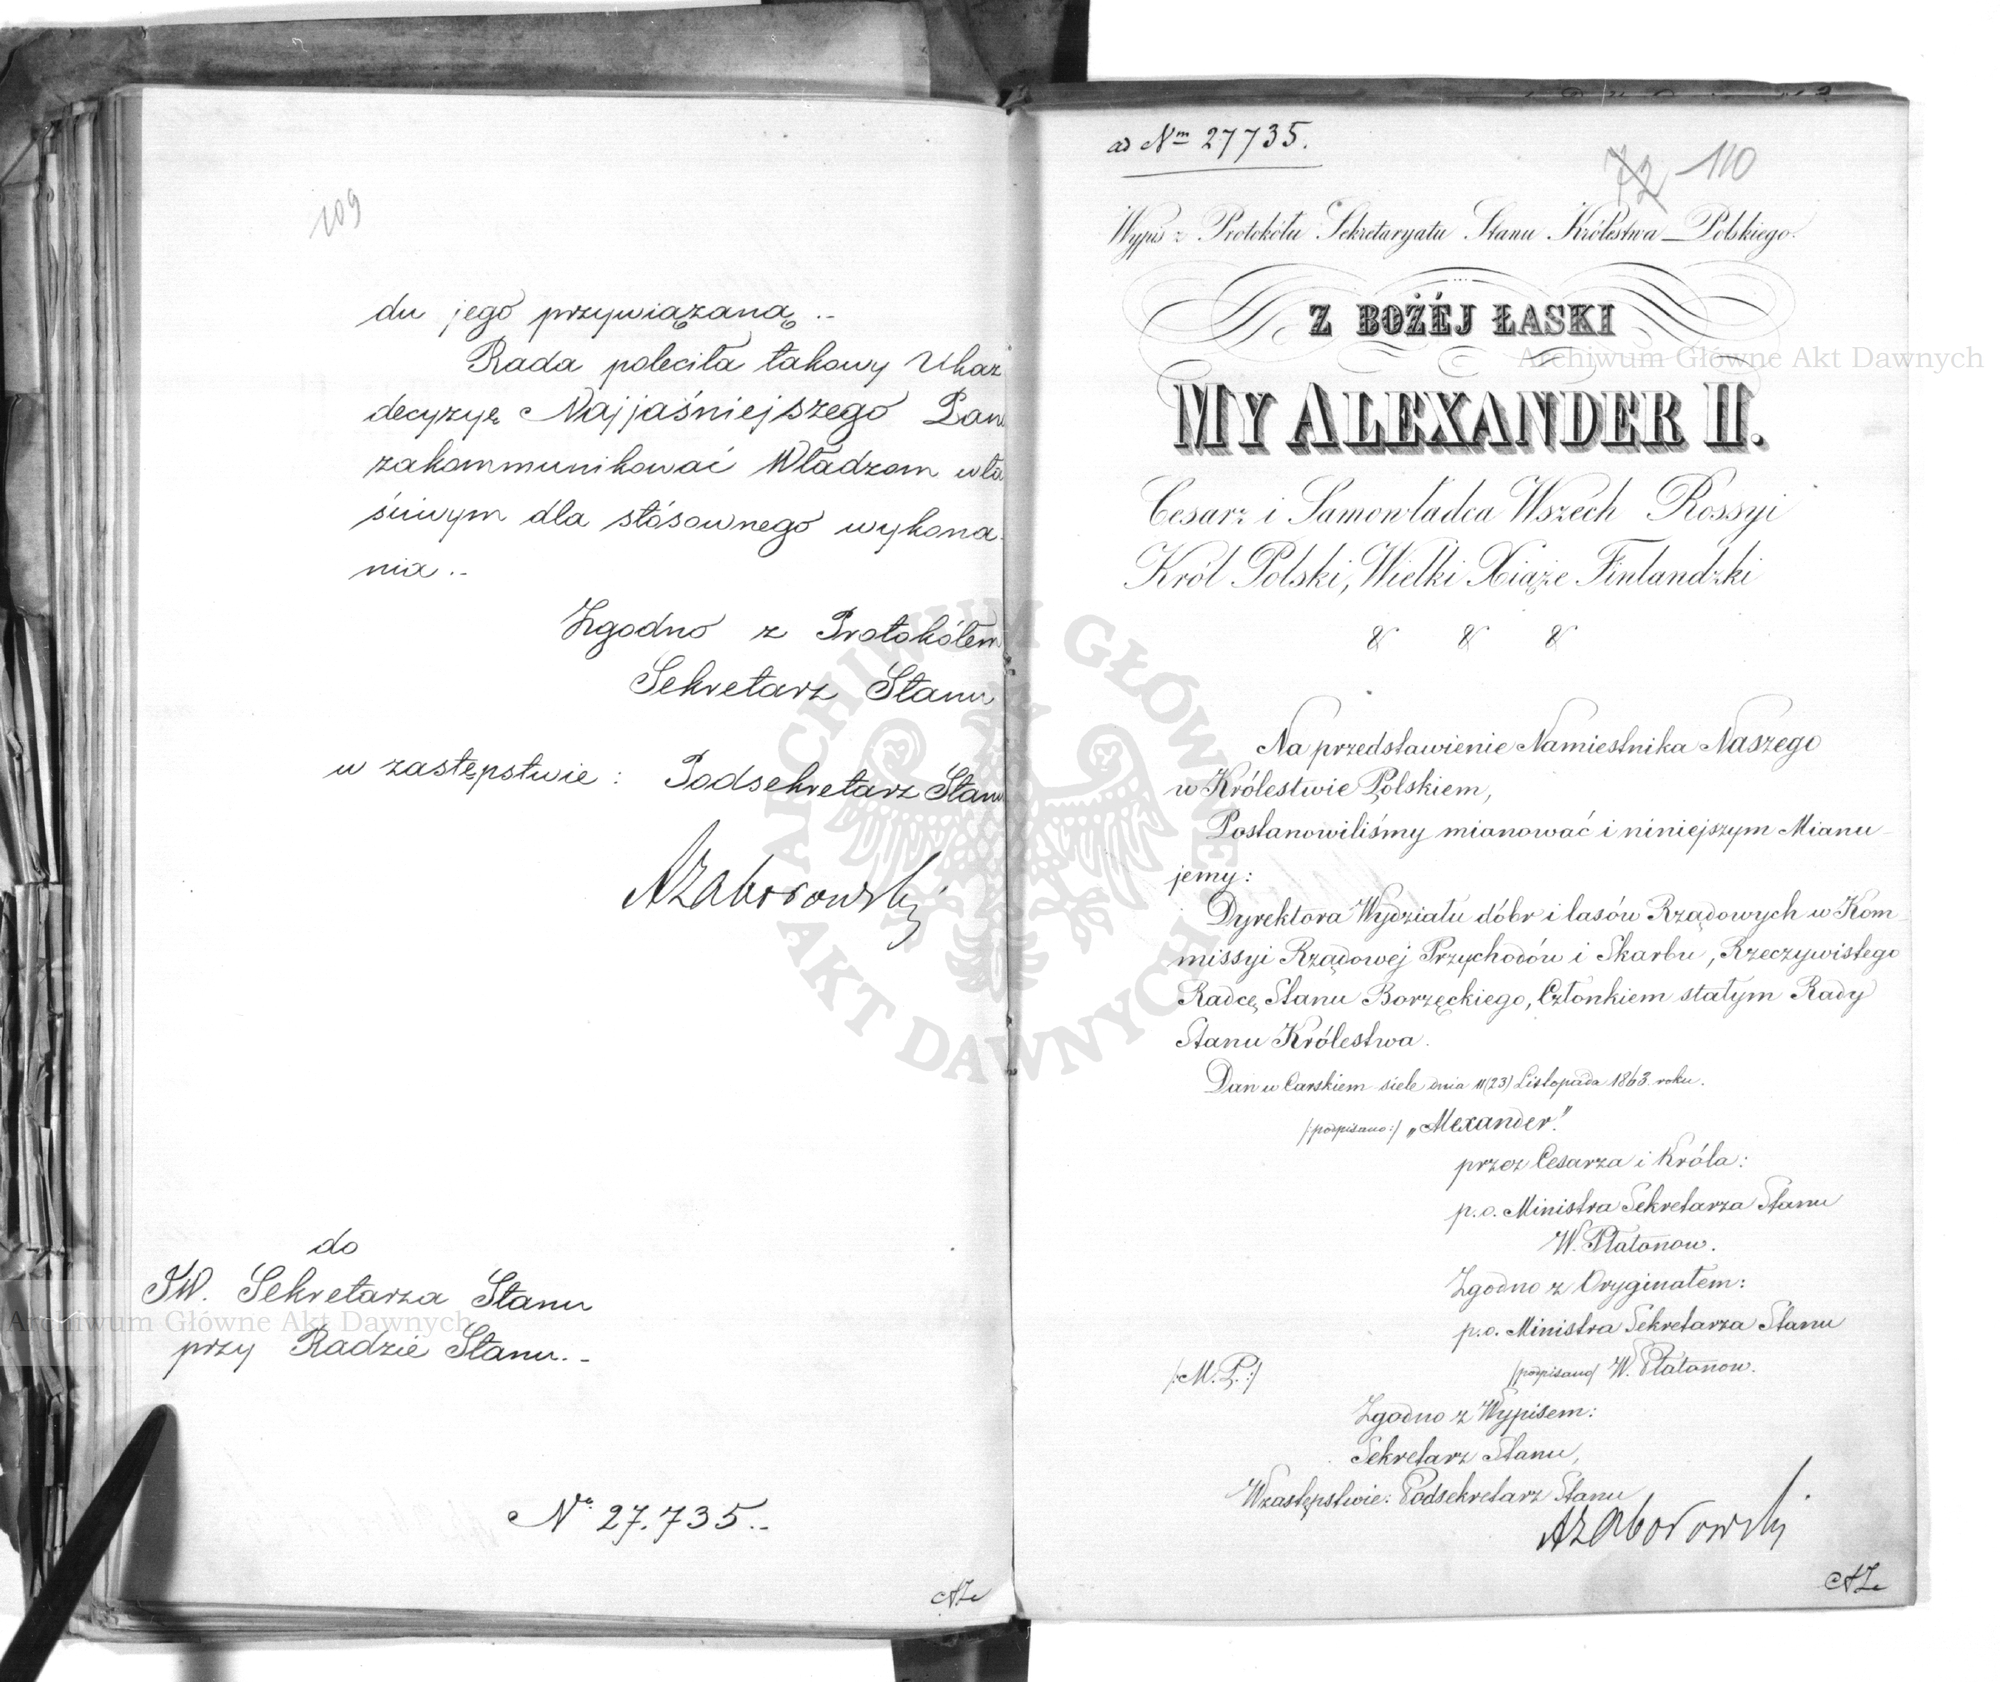 109
du jego przywiązaną.-
Rada poleciła takowy Ukaz
decyzyę Najjaśniejszego Pan
zakommunikować Władzom wła
ściwym dla stósownego wykona
nia.-
Zgodno z Protokółem
Sekretarz Stanu
w zastępstwie: Podsekretarz Stanu
AZaborowski
do
JW. Sekretarza Stanu
przy Radzie Stanu.-
No 27.735.-
AZ
ad Nm 27735.
72 110
Wypis z Protokółu Sekretaryatu Stanu Królestwa Polskiego.
Z BOŻÉJ ŁASKI
MY ALEXANDER II.
Cesarz i Samowładca Wszech Rossyi
Król Polski, Wielki Xiąże Finlandzki
& & &
Na przedstawienie Namiestnika Naszego
w Królestwie Polskiem,
Postanowiliśmy mianować i niniejszym Mianu-
jemy:
Dyrektora Wydziału dóbr i lasów Rządowych w Kom-
missyi Rządowej Przychodów i Skarbu, Rzeczywistego
Radcę Stanu Borzęckiego, Członkiem stałym Rady
Stanu Królestwa.
Dan w Carskiem siele dnia 11 (23) Listopada 1863 roku.
/:podpisano:/ „Alexander."
przez Cesarza i Króla:
p.o. Ministra Sekretarza Stanu
W. Płatonow.
Zgodno z Oryginałem:
p.o. Ministra Sekretarza Stanu
/:M.P.:/ /podpisano/ W. Płatonow.
Zgodno z Wypisem:
Sekretarz Stanu,
Wzastępstwie: Podsekretarz Stanu
AZaborowski
AZ
Archiwum Główne Akt Dawnych
Archiwum Główne Akt Dawnych
ARCHIWUM GŁÓWNE AKT DAWNYCH